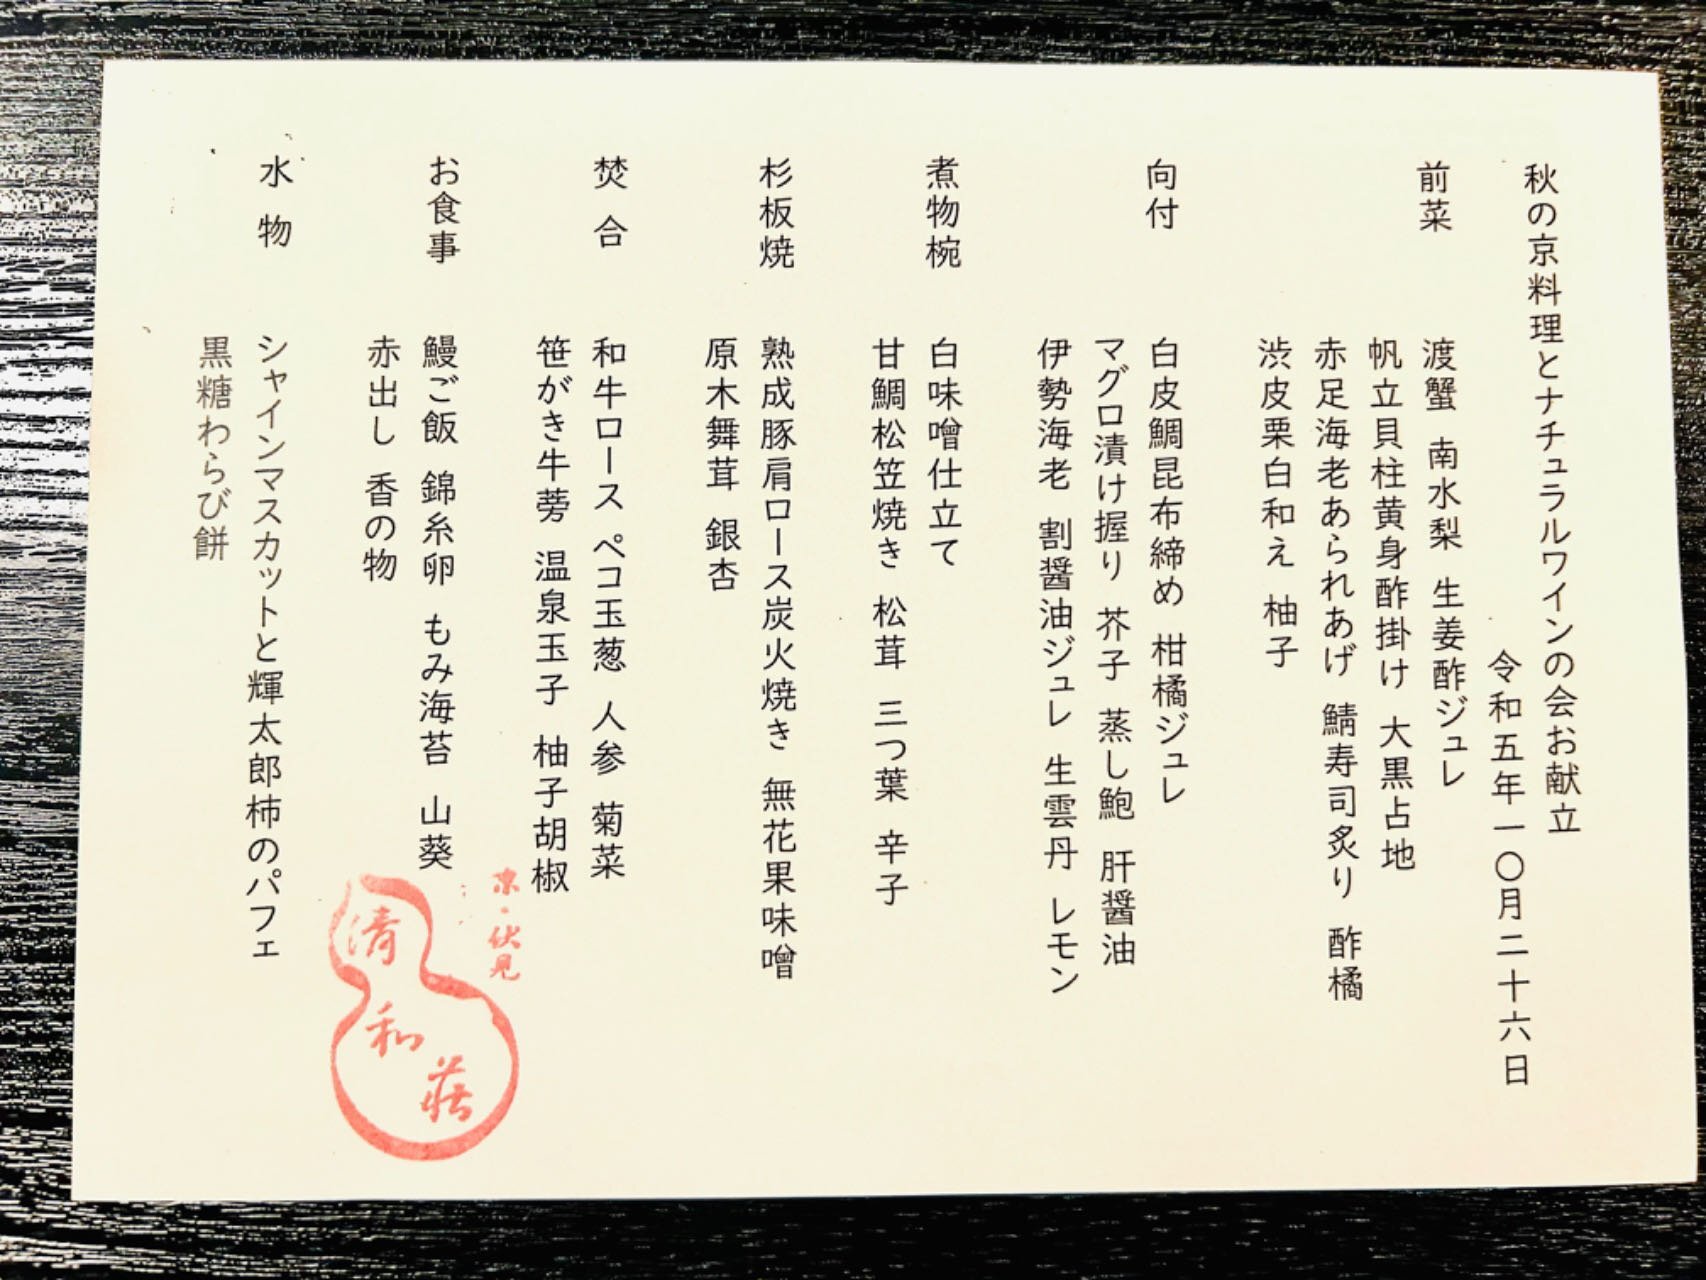 秋の京料理とナチュラルワインの会お献立
令和五年一〇月二十六日
前菜　渡蟹　南水梨　生姜酢ジュレ
帆立貝柱黄身酢掛け　大黒占地
赤足海老あられあげ　鯖寿司炙り　酢橘
渋皮栗白和え　柚子
向付　白皮鯛昆布締め　柑橘ジュレ
マグロ漬け握り　芥子　蒸し鮑　肝醤油
伊勢海老　割醤油ジュレ　生雲丹　レモン
煮物椀　白味噌仕立て
甘鯛松笠焼き　松茸　三つ葉　辛子
杉板焼　熟成豚肩ロース炭火焼き　無花果味噌
原木舞茸　銀杏
焚合　和牛ロース　ペコ玉葱　人参　菊菜
笹がき牛蒡　温泉玉子　柚子胡椒
お食事　鰻ご飯　錦糸卵　もみ海苔　山葵
赤出し　香の物
水物　シャインマスカットと輝太郎柿のパフェ
黒糖わらび餅
京・伏見
清和荘